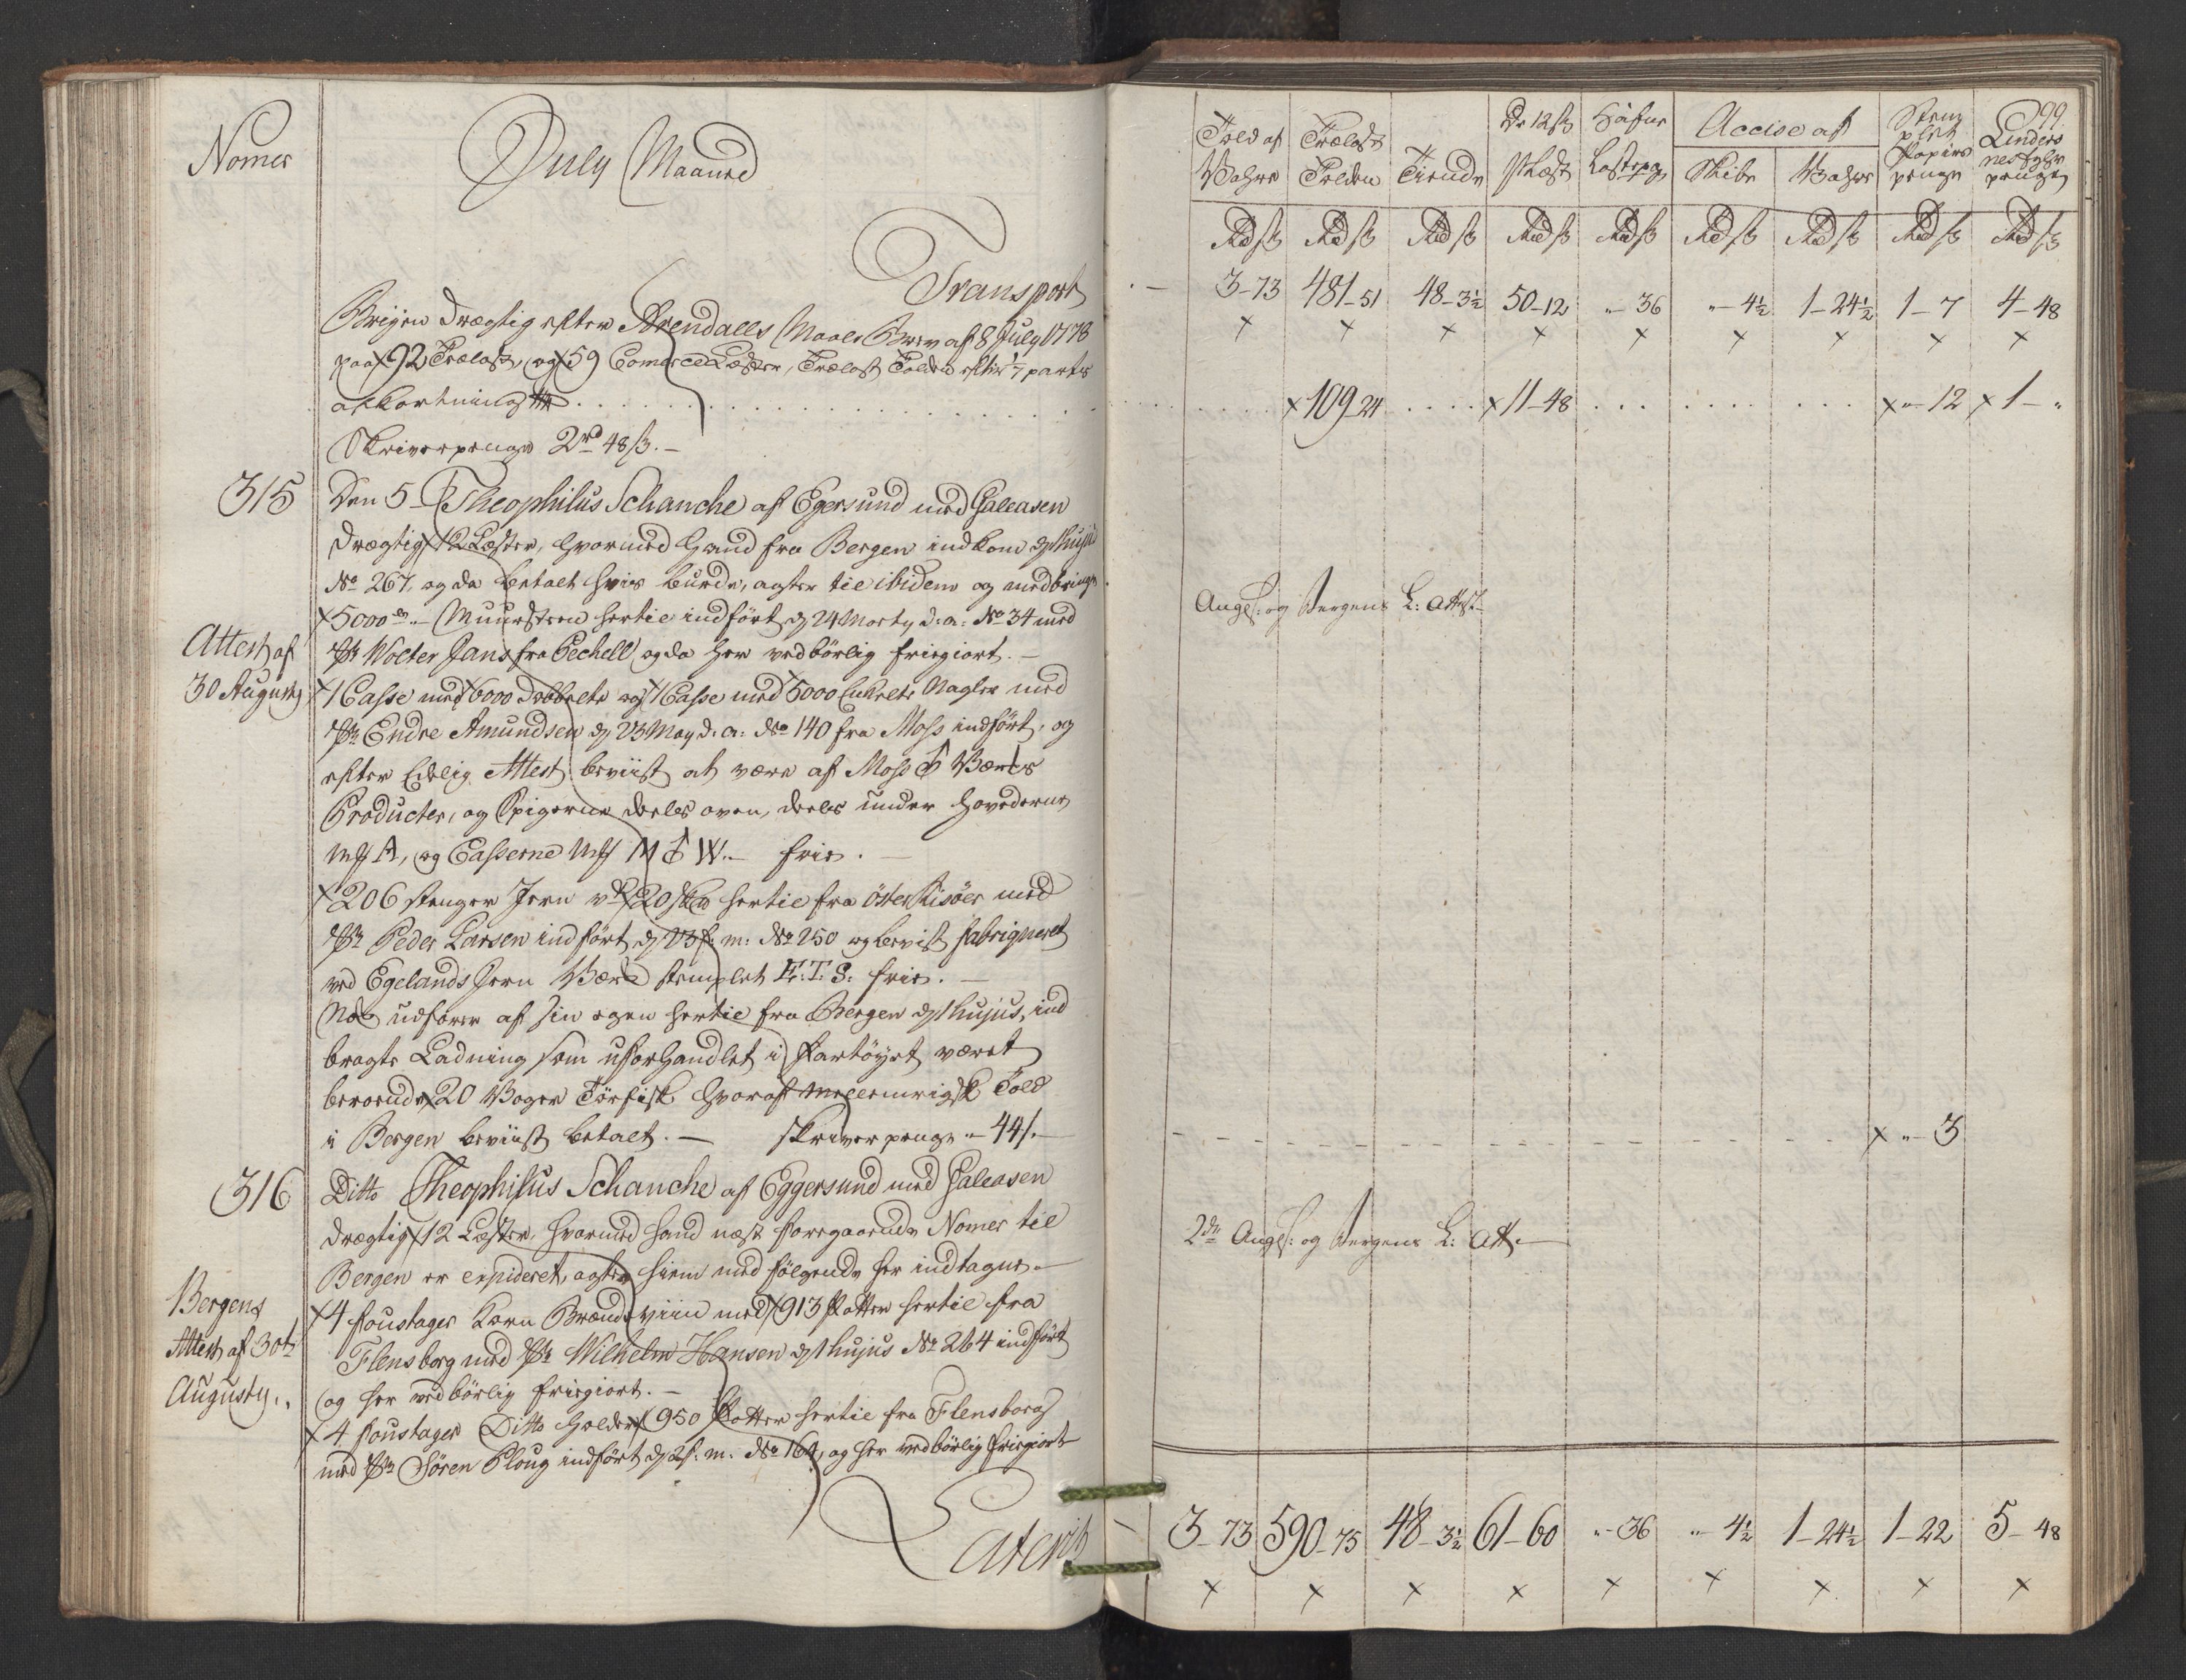 Nomer
July Maaned
Transport
Brigen drægtig efter Arendalls Maale Brev af 8 July 1778
paa 92 Trælast, og 59 Comerce Læster, Trælast Tolden efter 1/7 parts
afkortning
Skriverpenge 2 rd 48 ß. –
315
Den 5 Theophilus Schanche af Egersund med Galeasen
drægtig 12 Læster, hvormed hand fra Bergen indkom d. 1 hujus
No 267, og da betalt hvis burde, agter til ibidem og medbringer
5000 Muursteen hertil indført d. 24 Marty d: a: No 34 med
Sr Wolter Jans fra Pechell og da her vedbörlig friegiort. –
Attest af
30 Augusty
1 Casse med 6000 dobbelte og 1 Casse med 5000 Enkelte Nagler med
Sr Endre Amundsen d. 23 May d: a: No 140 fra Moss indført, og
efter Edelig Attest beviist at være af Moss Værks
Producter, og Spigerne deels oven, deels under hovederne
A, og Casserne M W. – frie. –
206 stenger Jern 20 hertil fra Öster Risöer med
Sr Peder Larsen indført d. 23 f: m: No 250 og bevist fabriqueret
ved Egelands Jern Værk stemplet E: T: S: frie. –
Nok udfører af sin egen hertil fra Bergen d. 1 hujus, ind
bragte Ladning som uforhandlet i Fartöyet været
beroende 20 Voger Törfisk hvoraf mellemrigsk Told
i Bergen beviist betalt. – skriverpenge " 44 ß. –
316
Ditto Theophilus Schanche af Eggersund med Galeasen
drægtig 12 Læster, hvormed hand næst foregaaende Nomer til
Bergen er expideret, agter hiem med følgende her indtagne. –
Bergens
Attest af 30te
Augusty.
4 foustager Korn Brændeviin med 913 Potter hertil fra
Flensborg med Sr Wilhelm Hansen d. 1 hujus No 264 indført
og her vedbörlig friegiort. –
4 foustager Ditto holder 950 Potter hertil fra Flensborg
med Sr Sören Ploug indført d. 2 f: m: No 164, og her vedbörlig friegiort
Lateris
99
Told af Vahre | Trælast Tolden | Tiende | De 12 ß pr Læst | Hafne Lastepg | Accise af Skibe | Vahre | Stemplet Papirs penge | Linders nes fyhr penge
Rd ß | Rd ß | Rd ß | Rd ß | Rd ß | Rd ß | Rd ß | Rd ß | Rd ß
3-73 | 481-51 | 48-3½ | 50-12 | "-36 | "-4½ | 1-24½ | 1-7 | 4-48
x x x x x x x x x
x 109-24 x 11-48 x "-12 x 1-"
Angl: og Bergens L: Attest
x "-3
2de Angl: og Bergens L: Att. –
3-73 | 590-75 | 48-3½ | 61-60 | "-36 | "-4½ | 1-24½ | 1-22 | 5-48
x x x x x x x x x